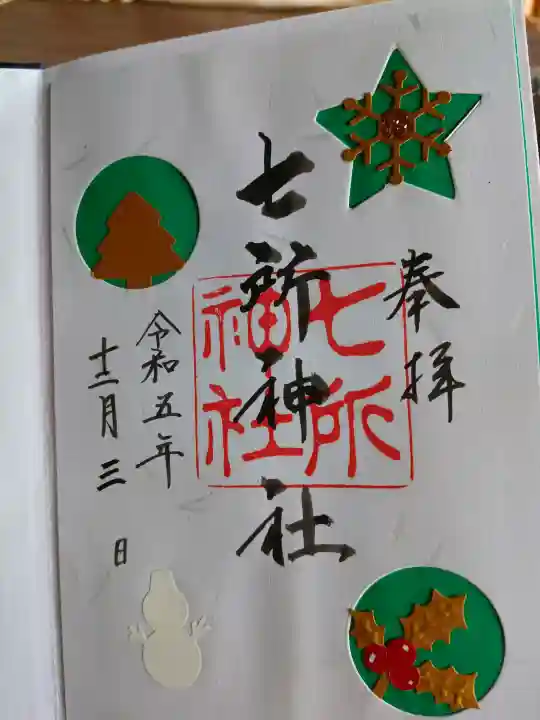 奉拝
七所神社
七所
神社
令和五年
十二月三日